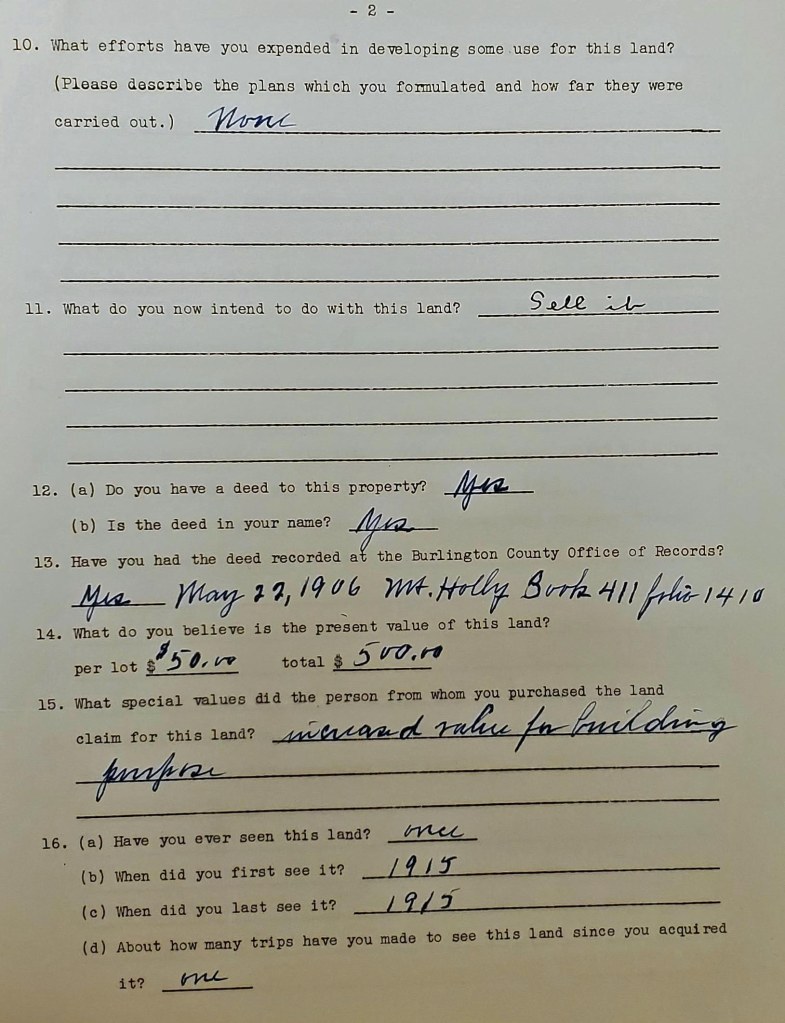 - 2 -
10. What efforts have you expended in developing some use for this land?
(Please describe the plans which you formulated and how far they were
carried out.) None
11. What do you now intend to do with this land? Sell it
12. (a) Do you have a deed to this property? Yes
(b) Is the deed in your name? Yes
13. Have you had the deed recorded at the Burlington County Office of Records?
Yes May 22, 1906 Mt. Holly Book 411 folio 1410
14. What do you believe is the present value of this land?
per lot $ $50.00 total $ 500.00
15. What special values did the person from whom you purchased the land
claim for this land? increased value for building
purpose
16. (a) Have you ever seen this land? once
(b) When did you first see it? 1915
(c) When did you last see it? 1915
(d) About how many trips have you made to see this land since you acquired
it? one